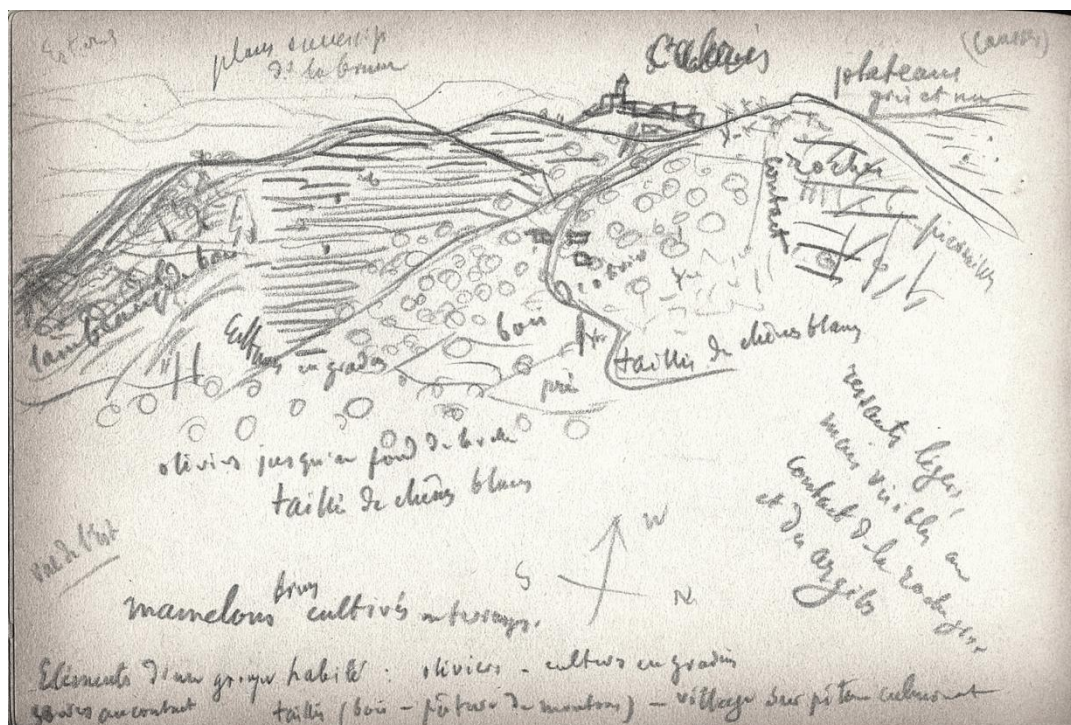 plans successifs
ds la brume
Cabris
(Causses)
plateaux
gris et nu
rocher
contact
pierrailles
lambeaux de bois
Cultures en gradins
bois
pré
taillis de chênes blancs
oliviers jusqu'au fond de la
taillis de chênes blancs
ressauts légers,
mais visibles au
contact de la roche
et des argiles
vue de l'Est
W
S
N
bruns
mamelons cultivés en terrasses.
Eléments d'un groupe habité : oliviers - cultures en gradins
sources au contact taillis (bois - pâture de moutons) - village sur piton culminant